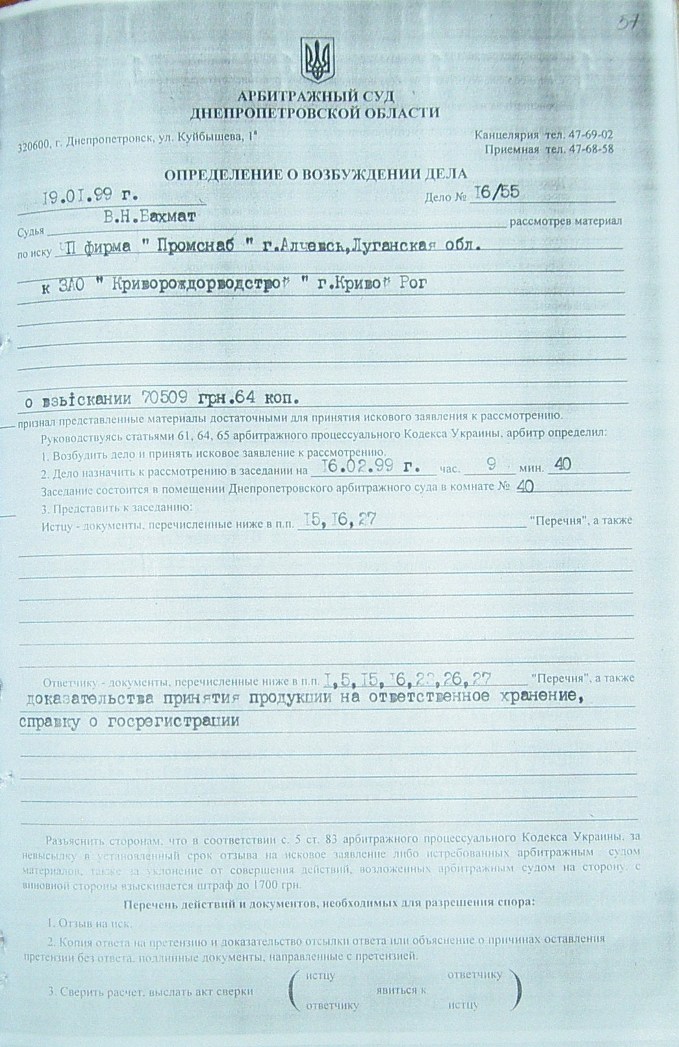 57
АРБИТРАЖНЫЙ СУД
ДНЕПРОПЕТРОВСКОЙ ОБЛАСТИ
320600, г. Днепропетровск, ул. Куйбышева, 1ª
Канцелярия тел. 47-69-02
Приемная тел. 47-68-58
ОПРЕДЕЛЕНИЕ О ВОЗБУЖДЕНИИ ДЕЛА
19.01.99 г. Дело № 16/55
Судья В.Н.Бахмат рассмотрев материал
по иску ЧП фирма " Промснаб " г.Алчевск,Луганская обл.
к ЗАО " Криворождорводстрой " г.Кривой Рог
о взыскании 70509 грн.64 коп.
признал представленные материалы достаточными для принятия искового заявления к рассмотрению.
Руководствуясь статьями 61, 64, 65 арбитражного процессуального Кодекса Украины, арбитр определил:
1. Возбудить дело и принять исковое заявление к рассмотрению.
2. Дело назначить к рассмотрению в заседании на 16.02.99 г. час. 9 мин. 40
Заседание состоится в помещении Днепропетровского арбитражного суда в комнате № 40
3. Представить к заседанию:
Истцу - документы, перечисленные ниже в п.п. 15,16,27 "Перечня", а также
Ответчику - документы, перечисленные ниже в п.п. 1,5,15,16,22,26,27 "Перечня", а также
доказательства принятия продукции на ответственное хранение,
справку о госрегистрации
Разъяснить сторонам, что в соответствии с. 5 ст. 83 арбитражного процессуального Кодекса Украины, за
невысылку в установленный срок отзыва на исковое заявление либо истребованных арбитражным судом
материалов, также за уклонение от совершения действий, возложенных арбитражным судом на сторону, с
виновной стороны взыскивается штраф до 1700 грн.
Перечень действий и документов, необходимых для разрешения спора:
1. Отзыв на иск.
2. Копия ответа на претензию и доказательство отсылки ответа или объяснение о причинах оставления
претензии без ответа, подлинные документы, направленные с претензией.
истцу ответчику
3. Сверить расчет, выслать акт сверки ( явиться к )
ответчику истцу